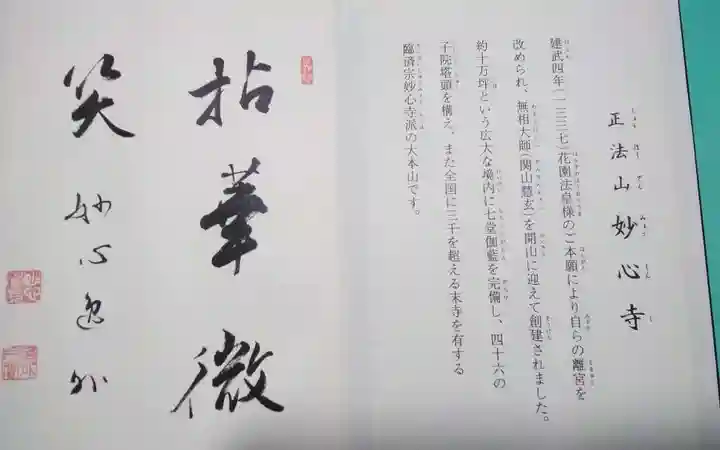 正法山妙心寺
建武四年(一三三七)花園法皇様のご本願により自らの離宮を
改められ、無相大師(関山慧玄)を開山に迎えて創建されました。
約十万坪という広大な境内に七堂伽藍を完備し、四十六の
子院塔頭を構え、また全国に三千を超える末寺を有する
臨済宗妙心寺派の大本山です。
拈華微
笑
妙心